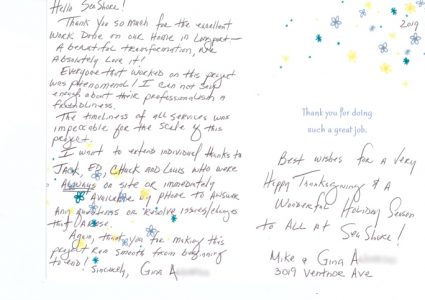 Hello SeaShore!
Thank you so much for the excellent
work done on our home in Longport—
A beautiful transformation, we
Absolutely love it!
Everyone that worked on this project
was phenomenal! I can not say
enough about their professionalism &
friendliness.
The timeliness of all services was
impeccable for the scale of this
project.
I want to extend individual thanks to
Jack, Ed, Chuck and Louis who were
Always on site or immediately
Available by phone to answer
Any questions or resolve issues/changes
that arose.
Again, thank you for making this
project run smooth from beginning
to end!
Sincerely, Gina A
2019
Thank you for doing
such a great job.
Best wishes for a very
Happy Thanksgiving & A
Wonderful Holiday Season
to ALL At
SeaShore!
Mike & Gina A
3019 Ventnor Ave